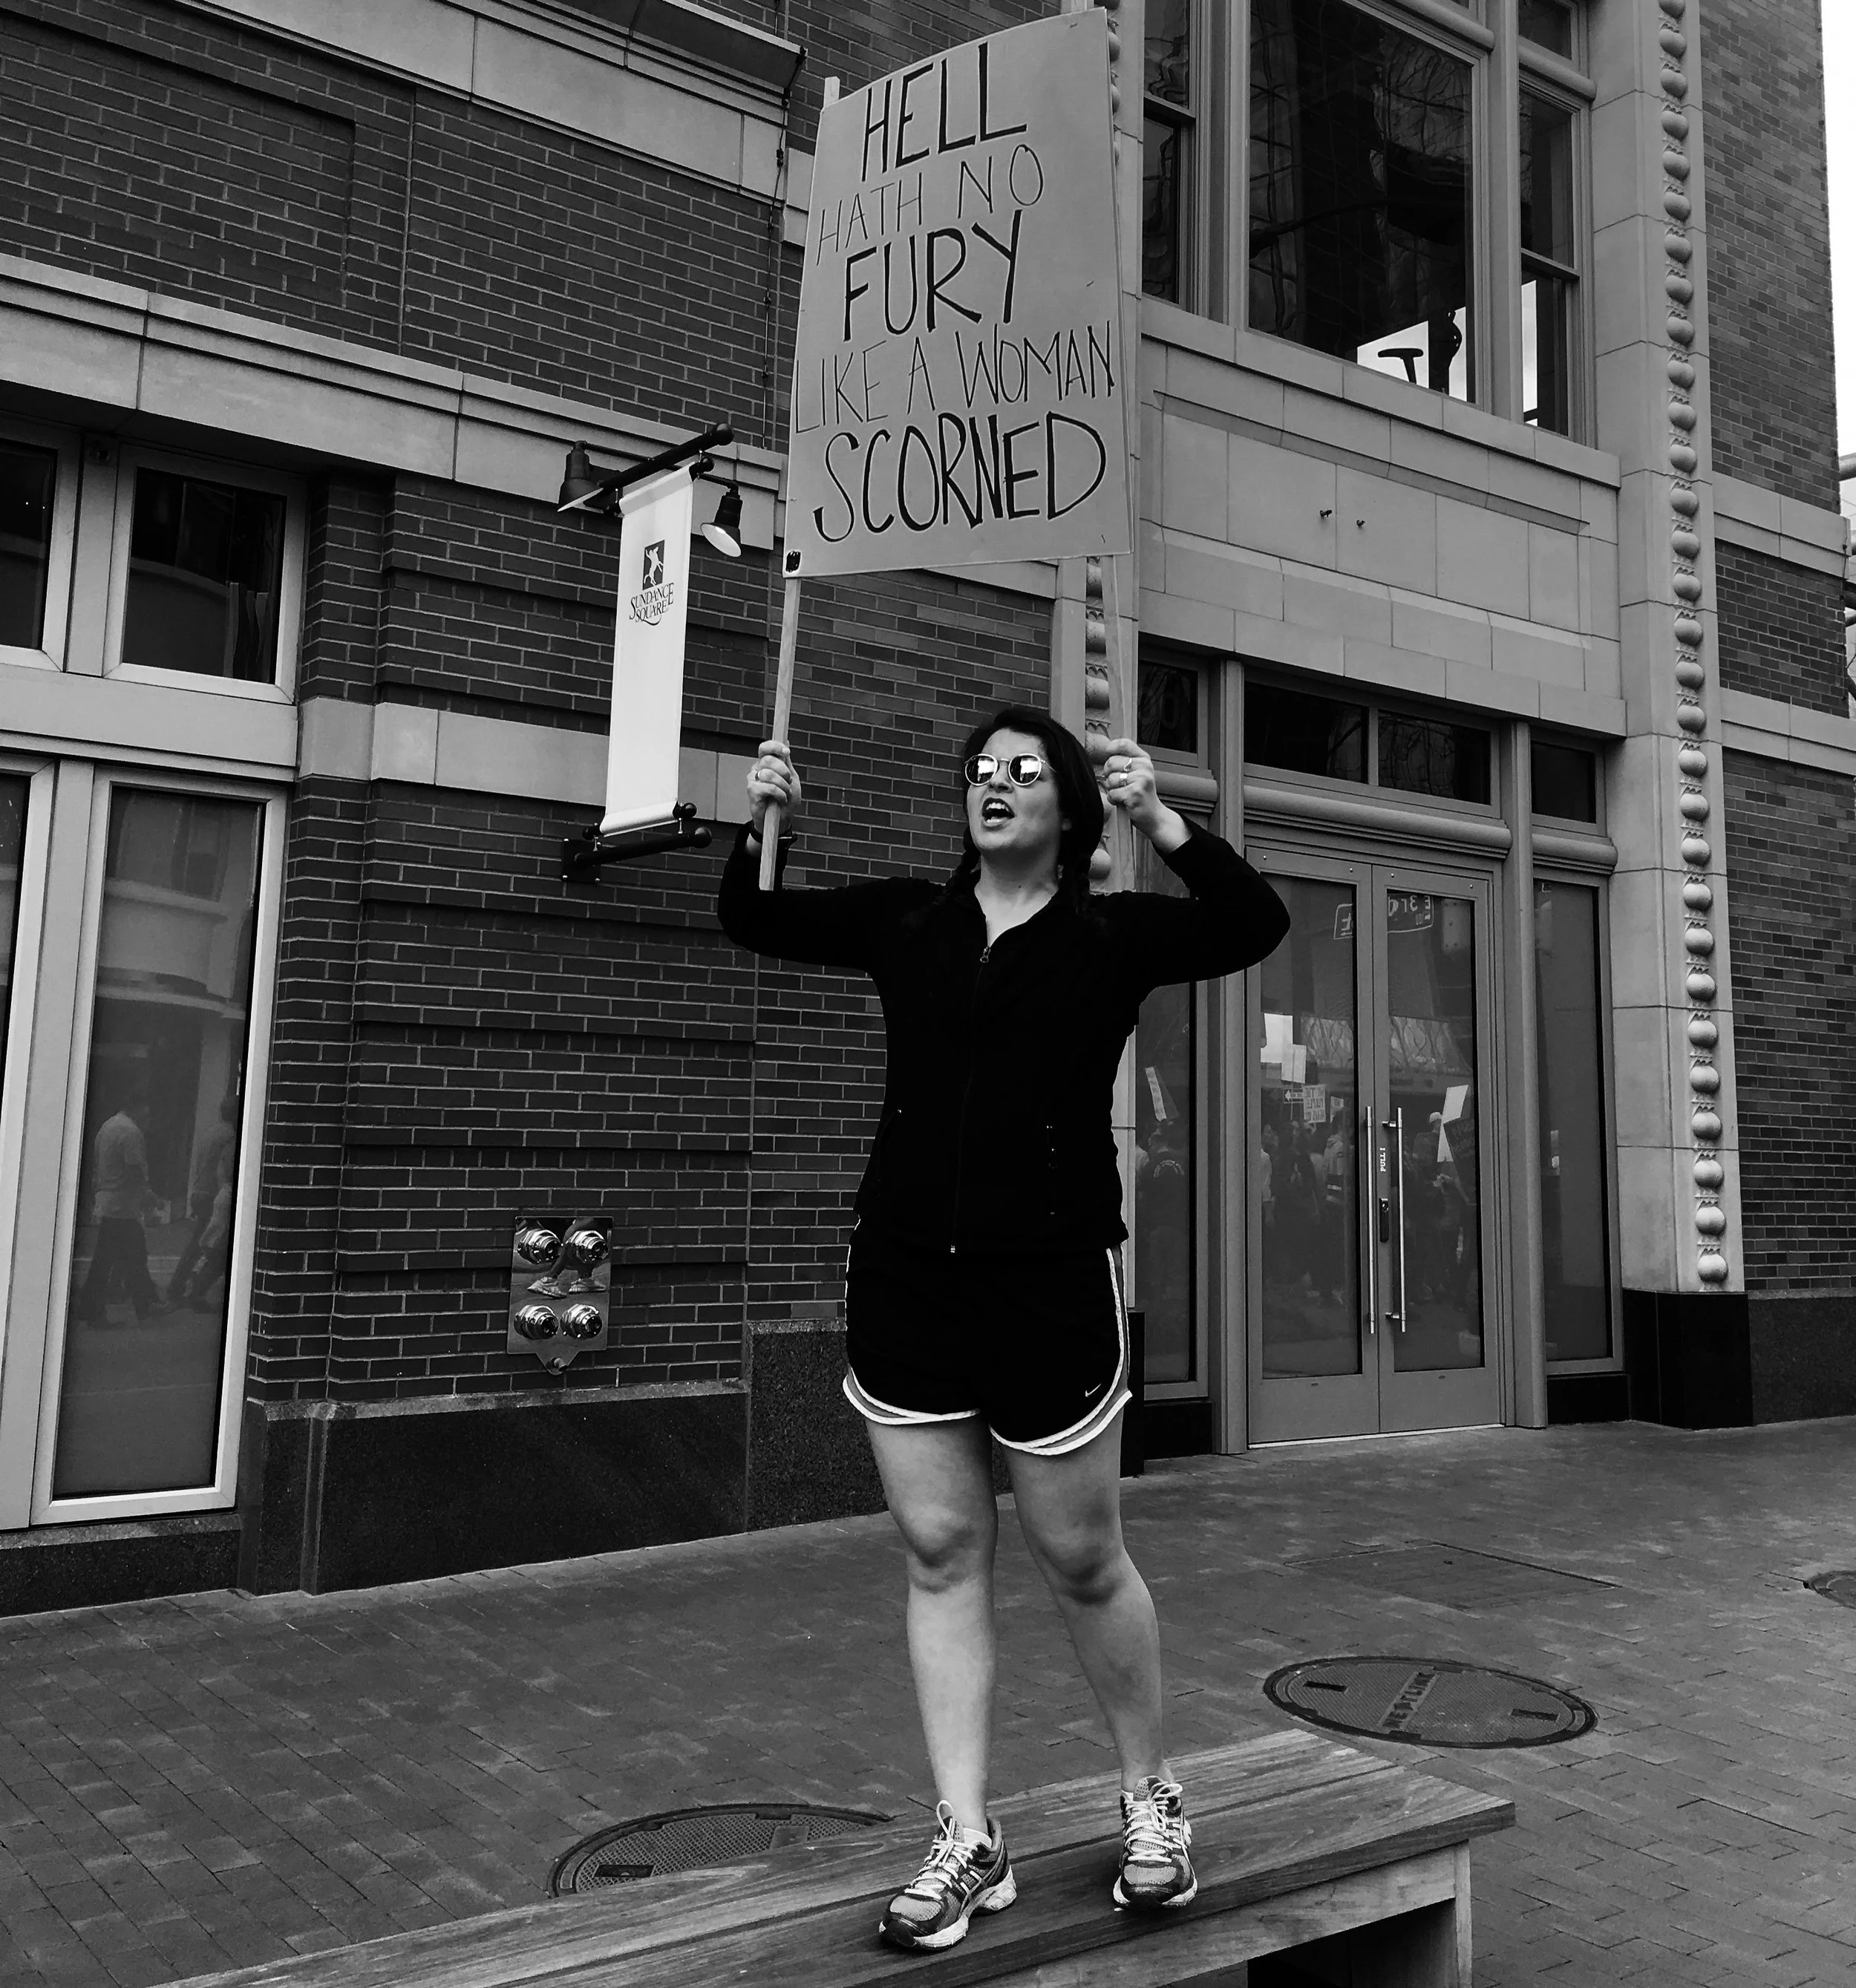 HELL
HATH NO
FURY
LIKE A WOMAN
SCORNED
SUNDANCE
SQUARE
PULL